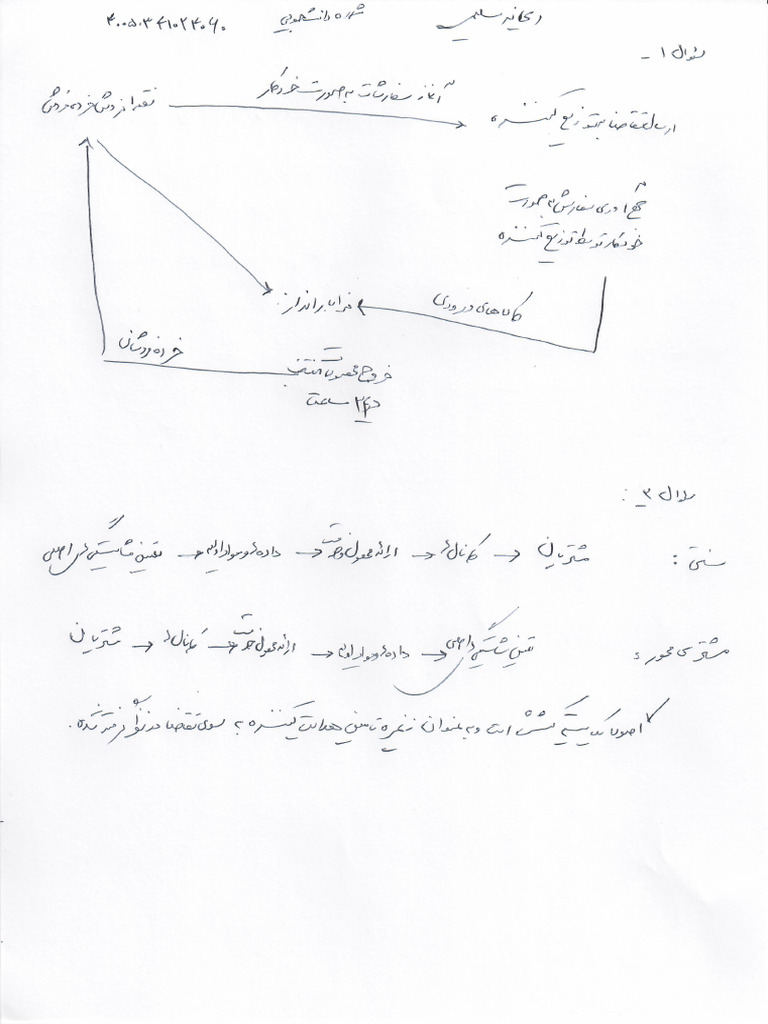 ریحانه سلیمی شماره دانشجویی ۴۰۰۵۰۳۴۱۰۲۴۰۶۰
سوال ۱ -
نقطه فروش خرده فروش
آغاز سفارشات به صورت خودکار
ارسال تقاضا به توزیع کننده
جمع آوری سفارش به صورت
خودکار توسط توزیع کننده
کالاهای ورودی
خرده فروشان
خروج محصولات منتخب
در ۲۴ ساعت
سوال ۳ :
سنتی : مشتریان → کانال ها → ارائه محصول خدمت → داده ها و مواد اولیه → تعیین شایستگی های اصلی
مشتری محور : تعیین شایستگی اصلی → داده ها و مواد اولیه → ارائه محصول خدمت → کانال ها → مشتریان
اصولا یک سیستم کششی است و به عنوان زنجیره تامین هدایت کننده به سوی تقاضا در نظر گرفته شده.